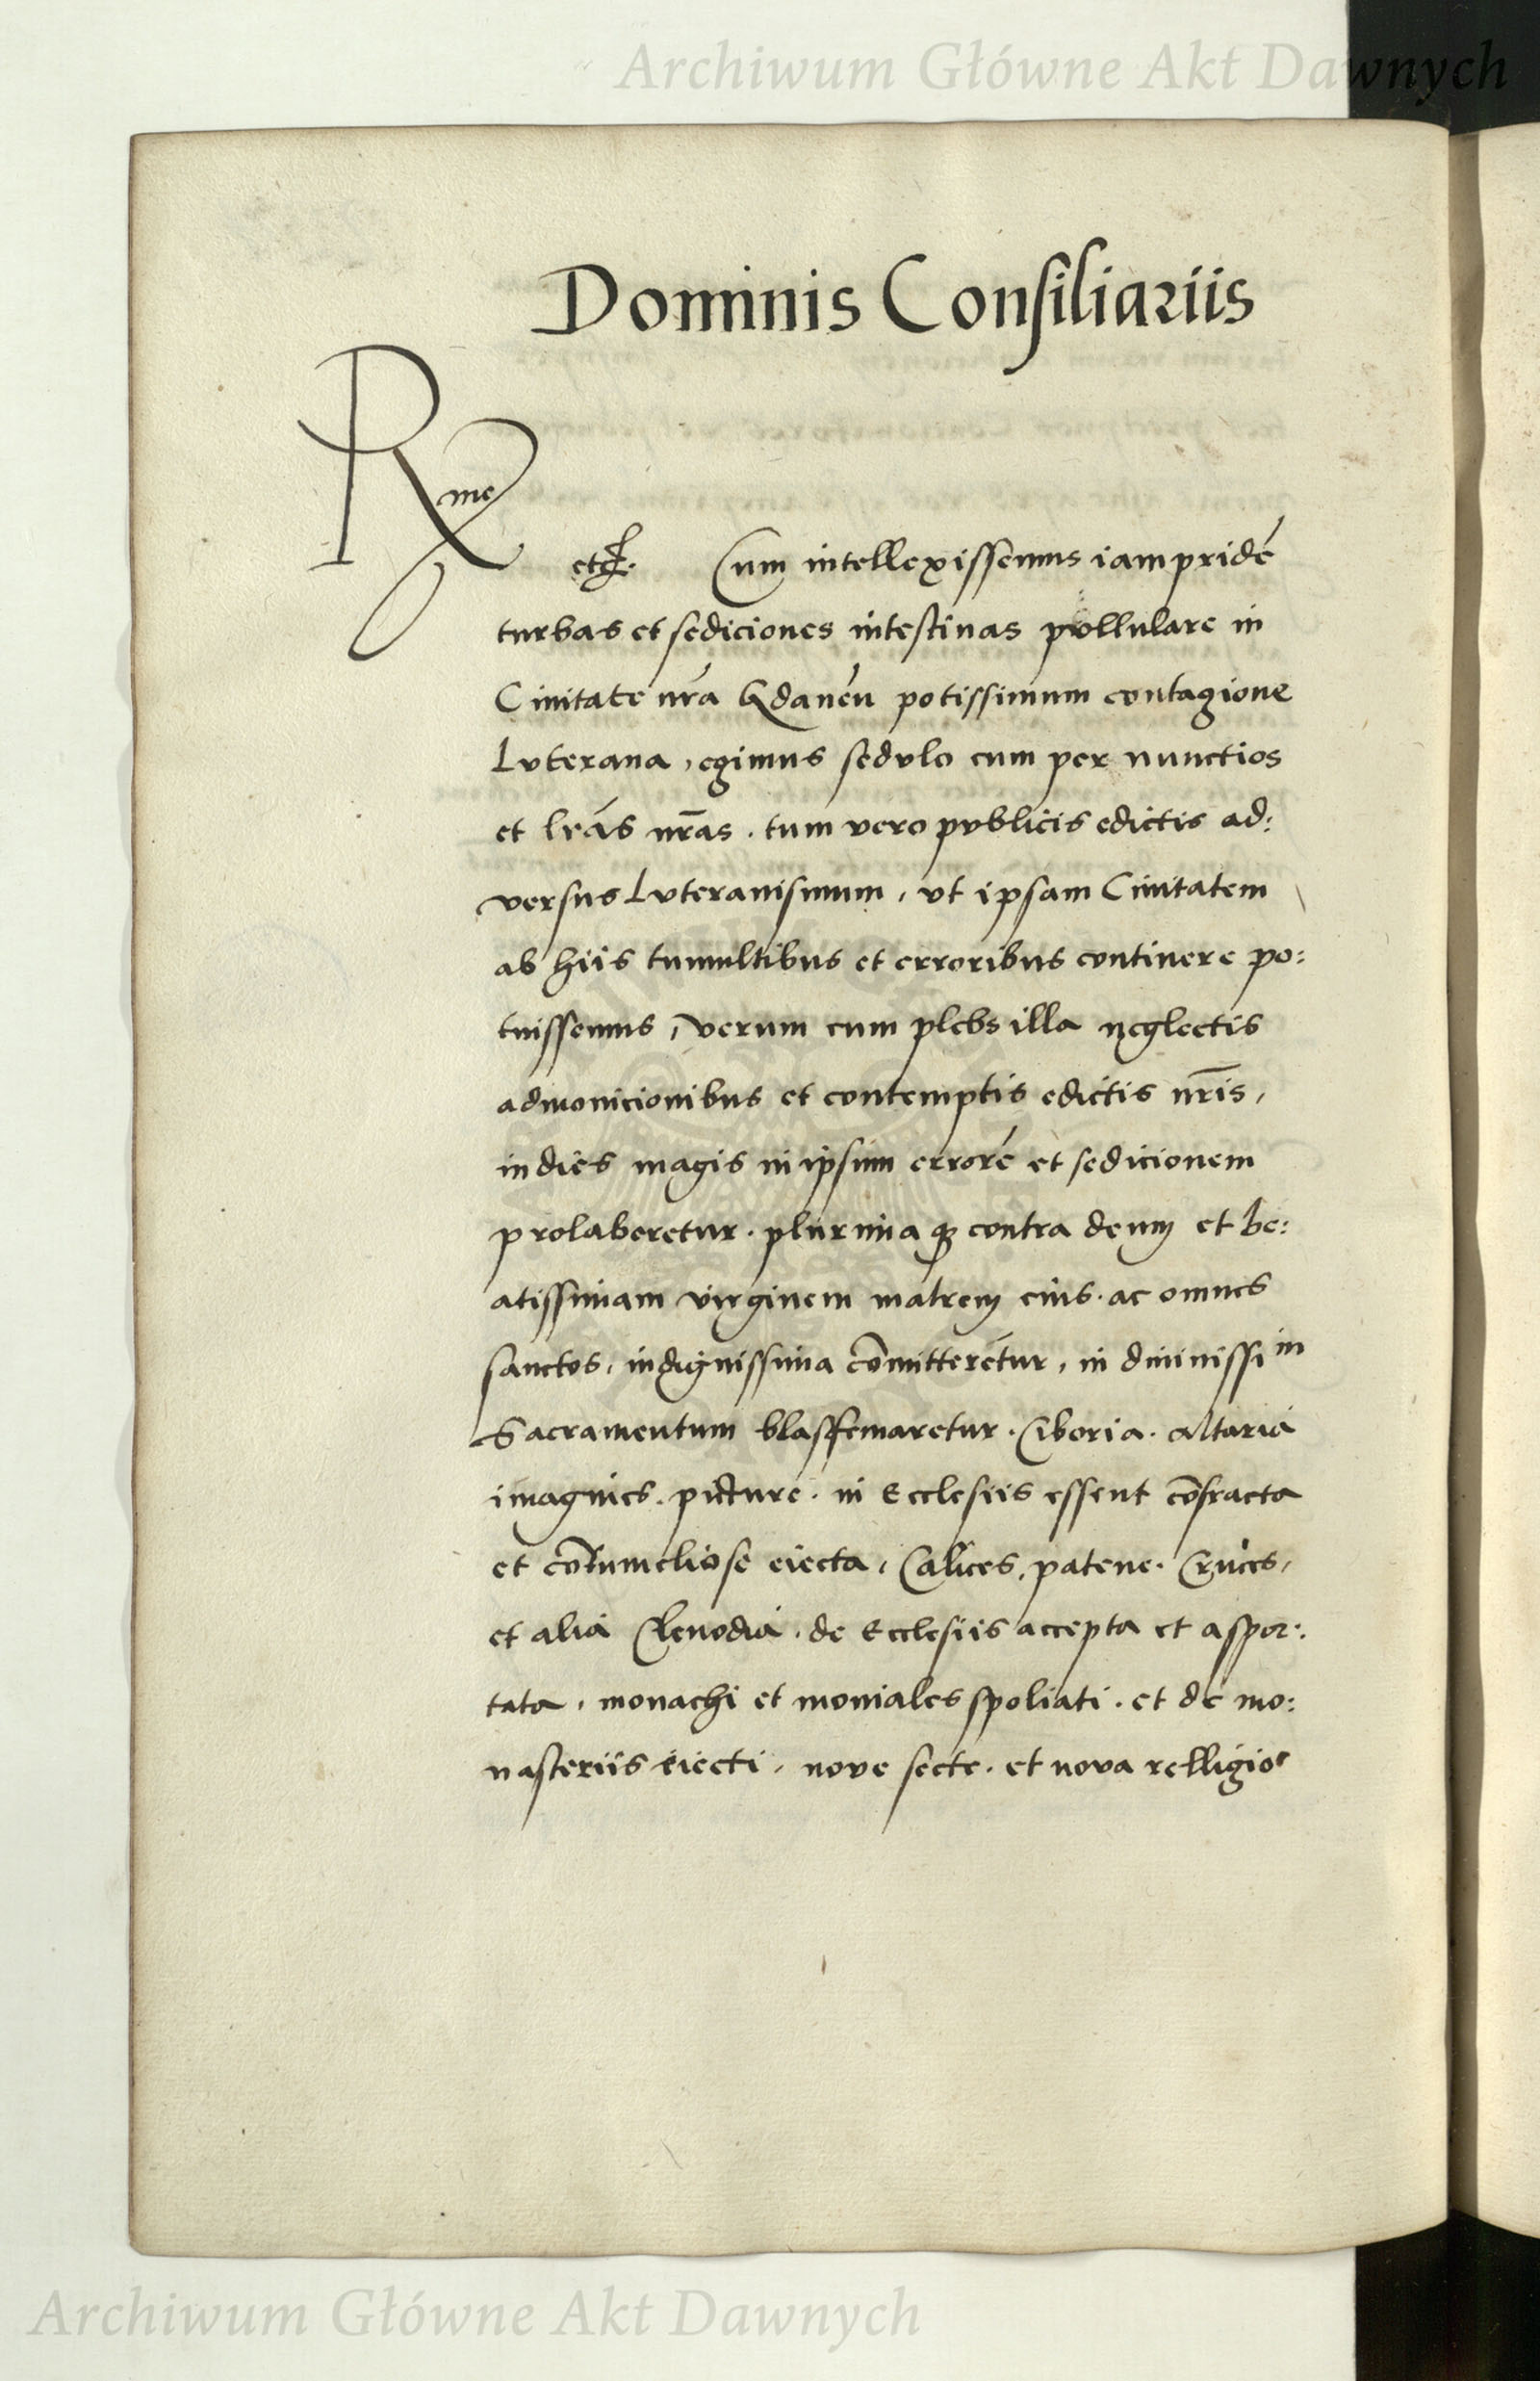 Archiwum Główne Akt Dawnych
Dominis Consiliariis
Rme
etc. Cum intellexissemus iampridē
turbas et sediciones intestinas pullulare in
Civitate nr̄a Gdanēn potissimum contagione
Lvterana, egimus sedvlo cum per nunctios
et lr̄as nr̄as. tum vero pvblicis edictis ad:
versus Lvteranismum, vt ipsam Civitatem
ab hiis tumultibus et erroribus continere po:
tuissemus, verum cum plebs illa neglectis
admonicionibus et contemptis edictis nr̄is,
indies magis in ipsum errorē et sedicionem
prolaberetur. plurima qꝫ contra deum et be:
atissimam virginem matrem eius. ac omnes
sanctos, indignissima cōmitterētur, in divinissim
Sacramentum blasfemaretur. Ciboria. altaria
imagines. picture. in Ecclesiis essent cōfracta
et cōtumeliose eiecta, Calices, patene. Cruces,
et alia Clenodia. de Ecclesiis accepta et aspor:
tata, monachi et moniales spoliati. et de mo:
nasteriis eiecti, nove secte. et nova relligio
Archiwum Główne Akt Dawnych